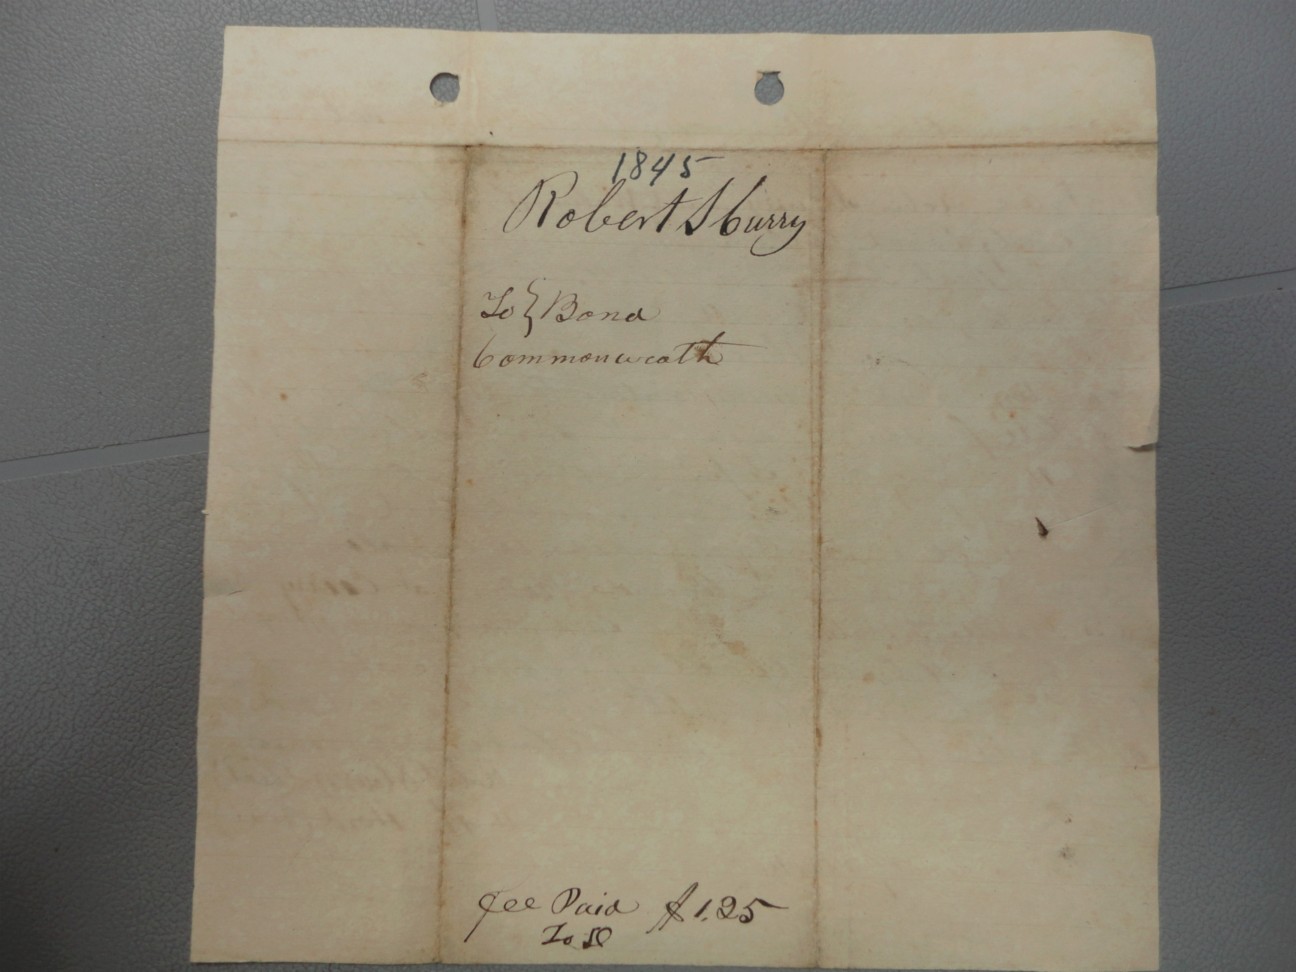 1845
Robert S Curry
To } Bond
Commonweath
Fee Paid $1.25
To